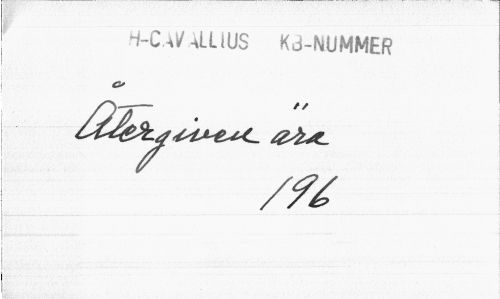 H-CAVALLIUS KB-NUMMER
Återgiven ära
196